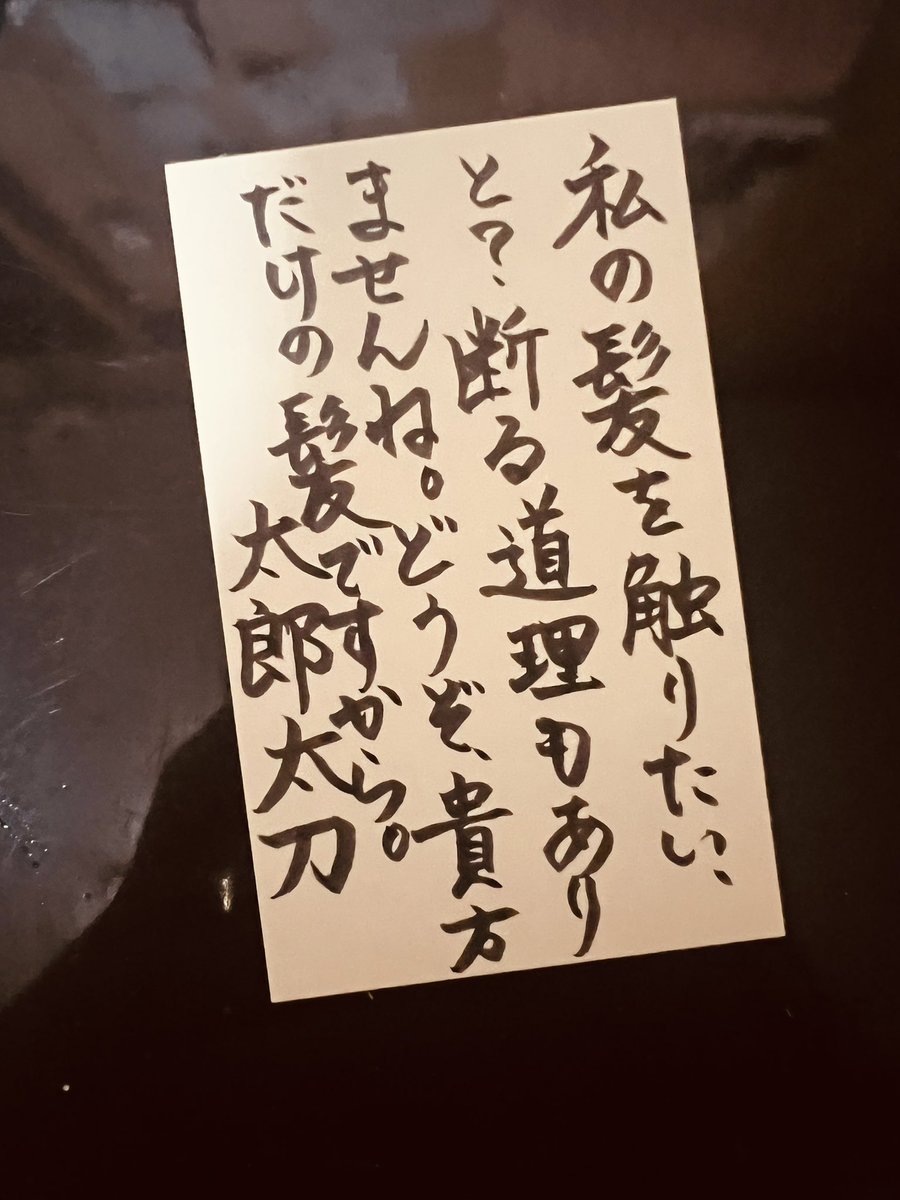 私の髪を触りたい、
と？、断る道理もあり
ませんね。どうぞ、貴方
だけの髪ですから。
太郎太刀